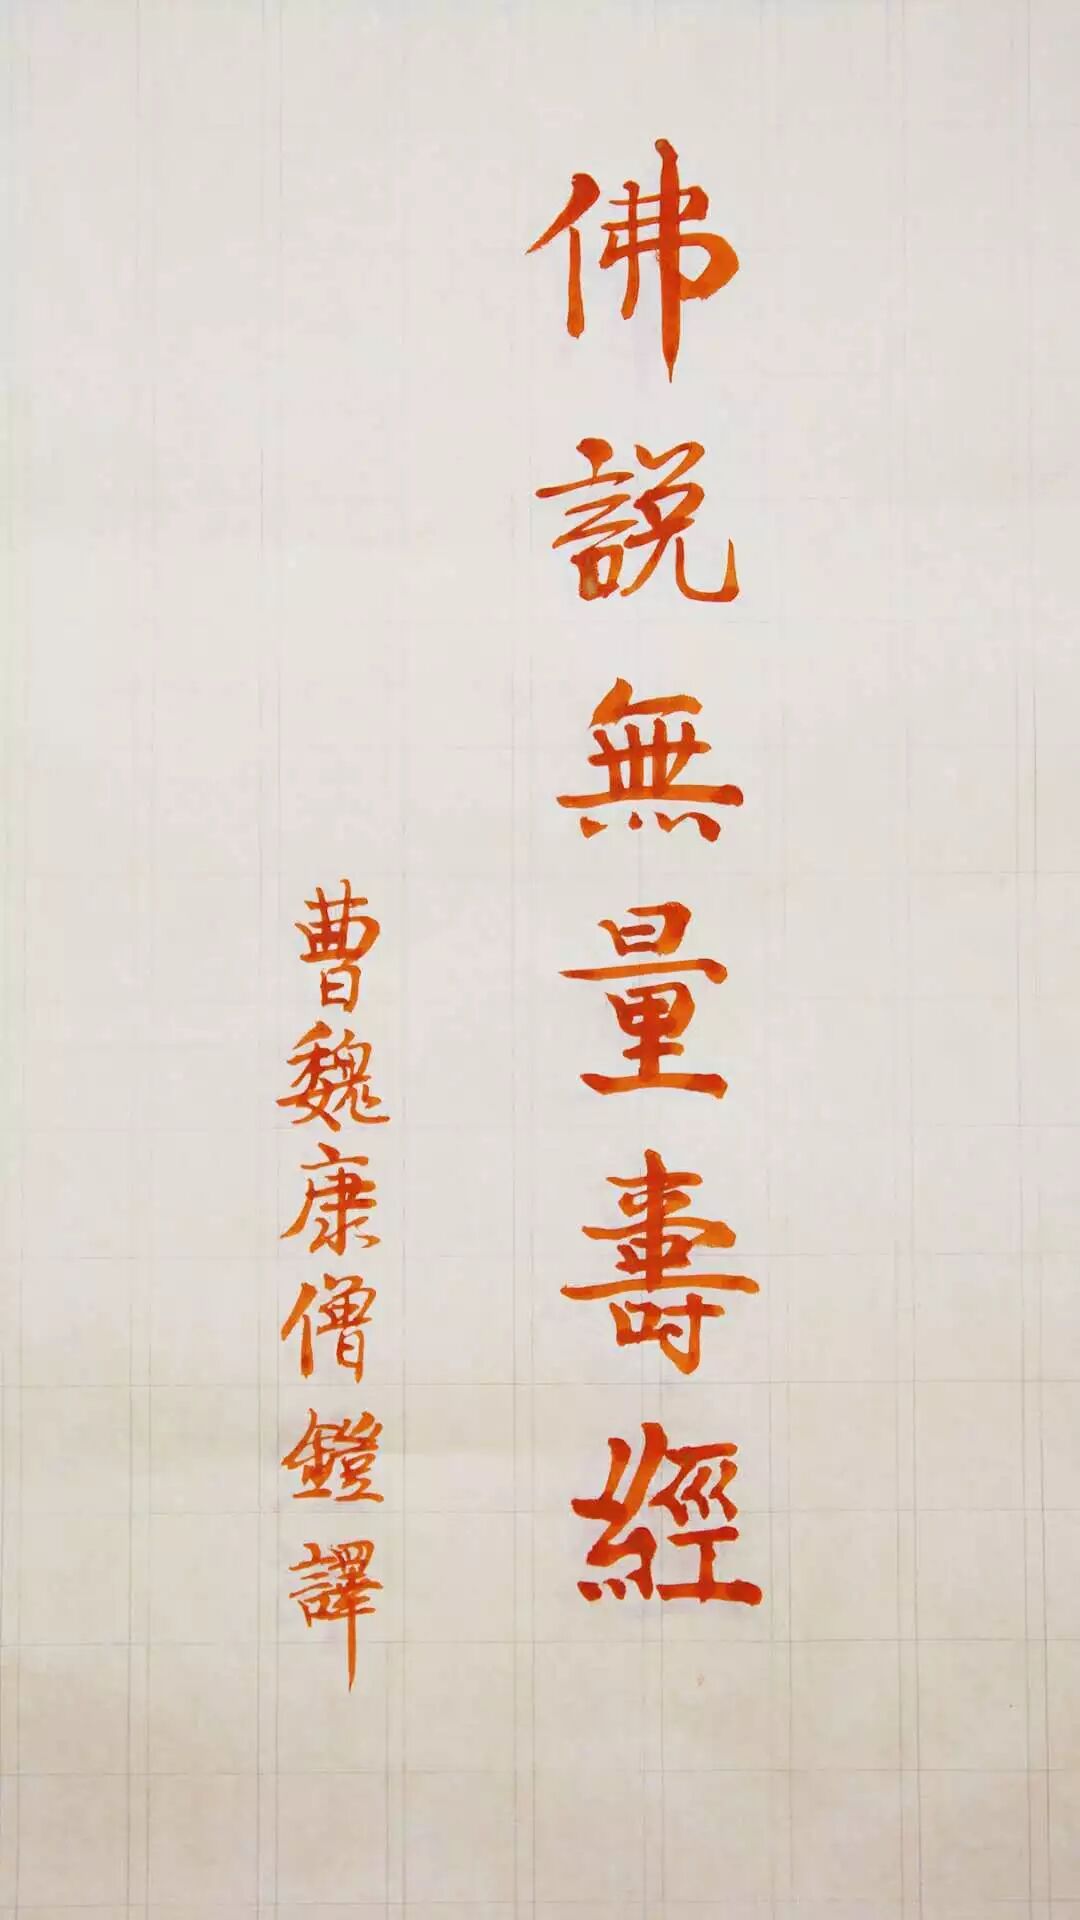 佛說無量壽經
曹魏康僧鎧譯